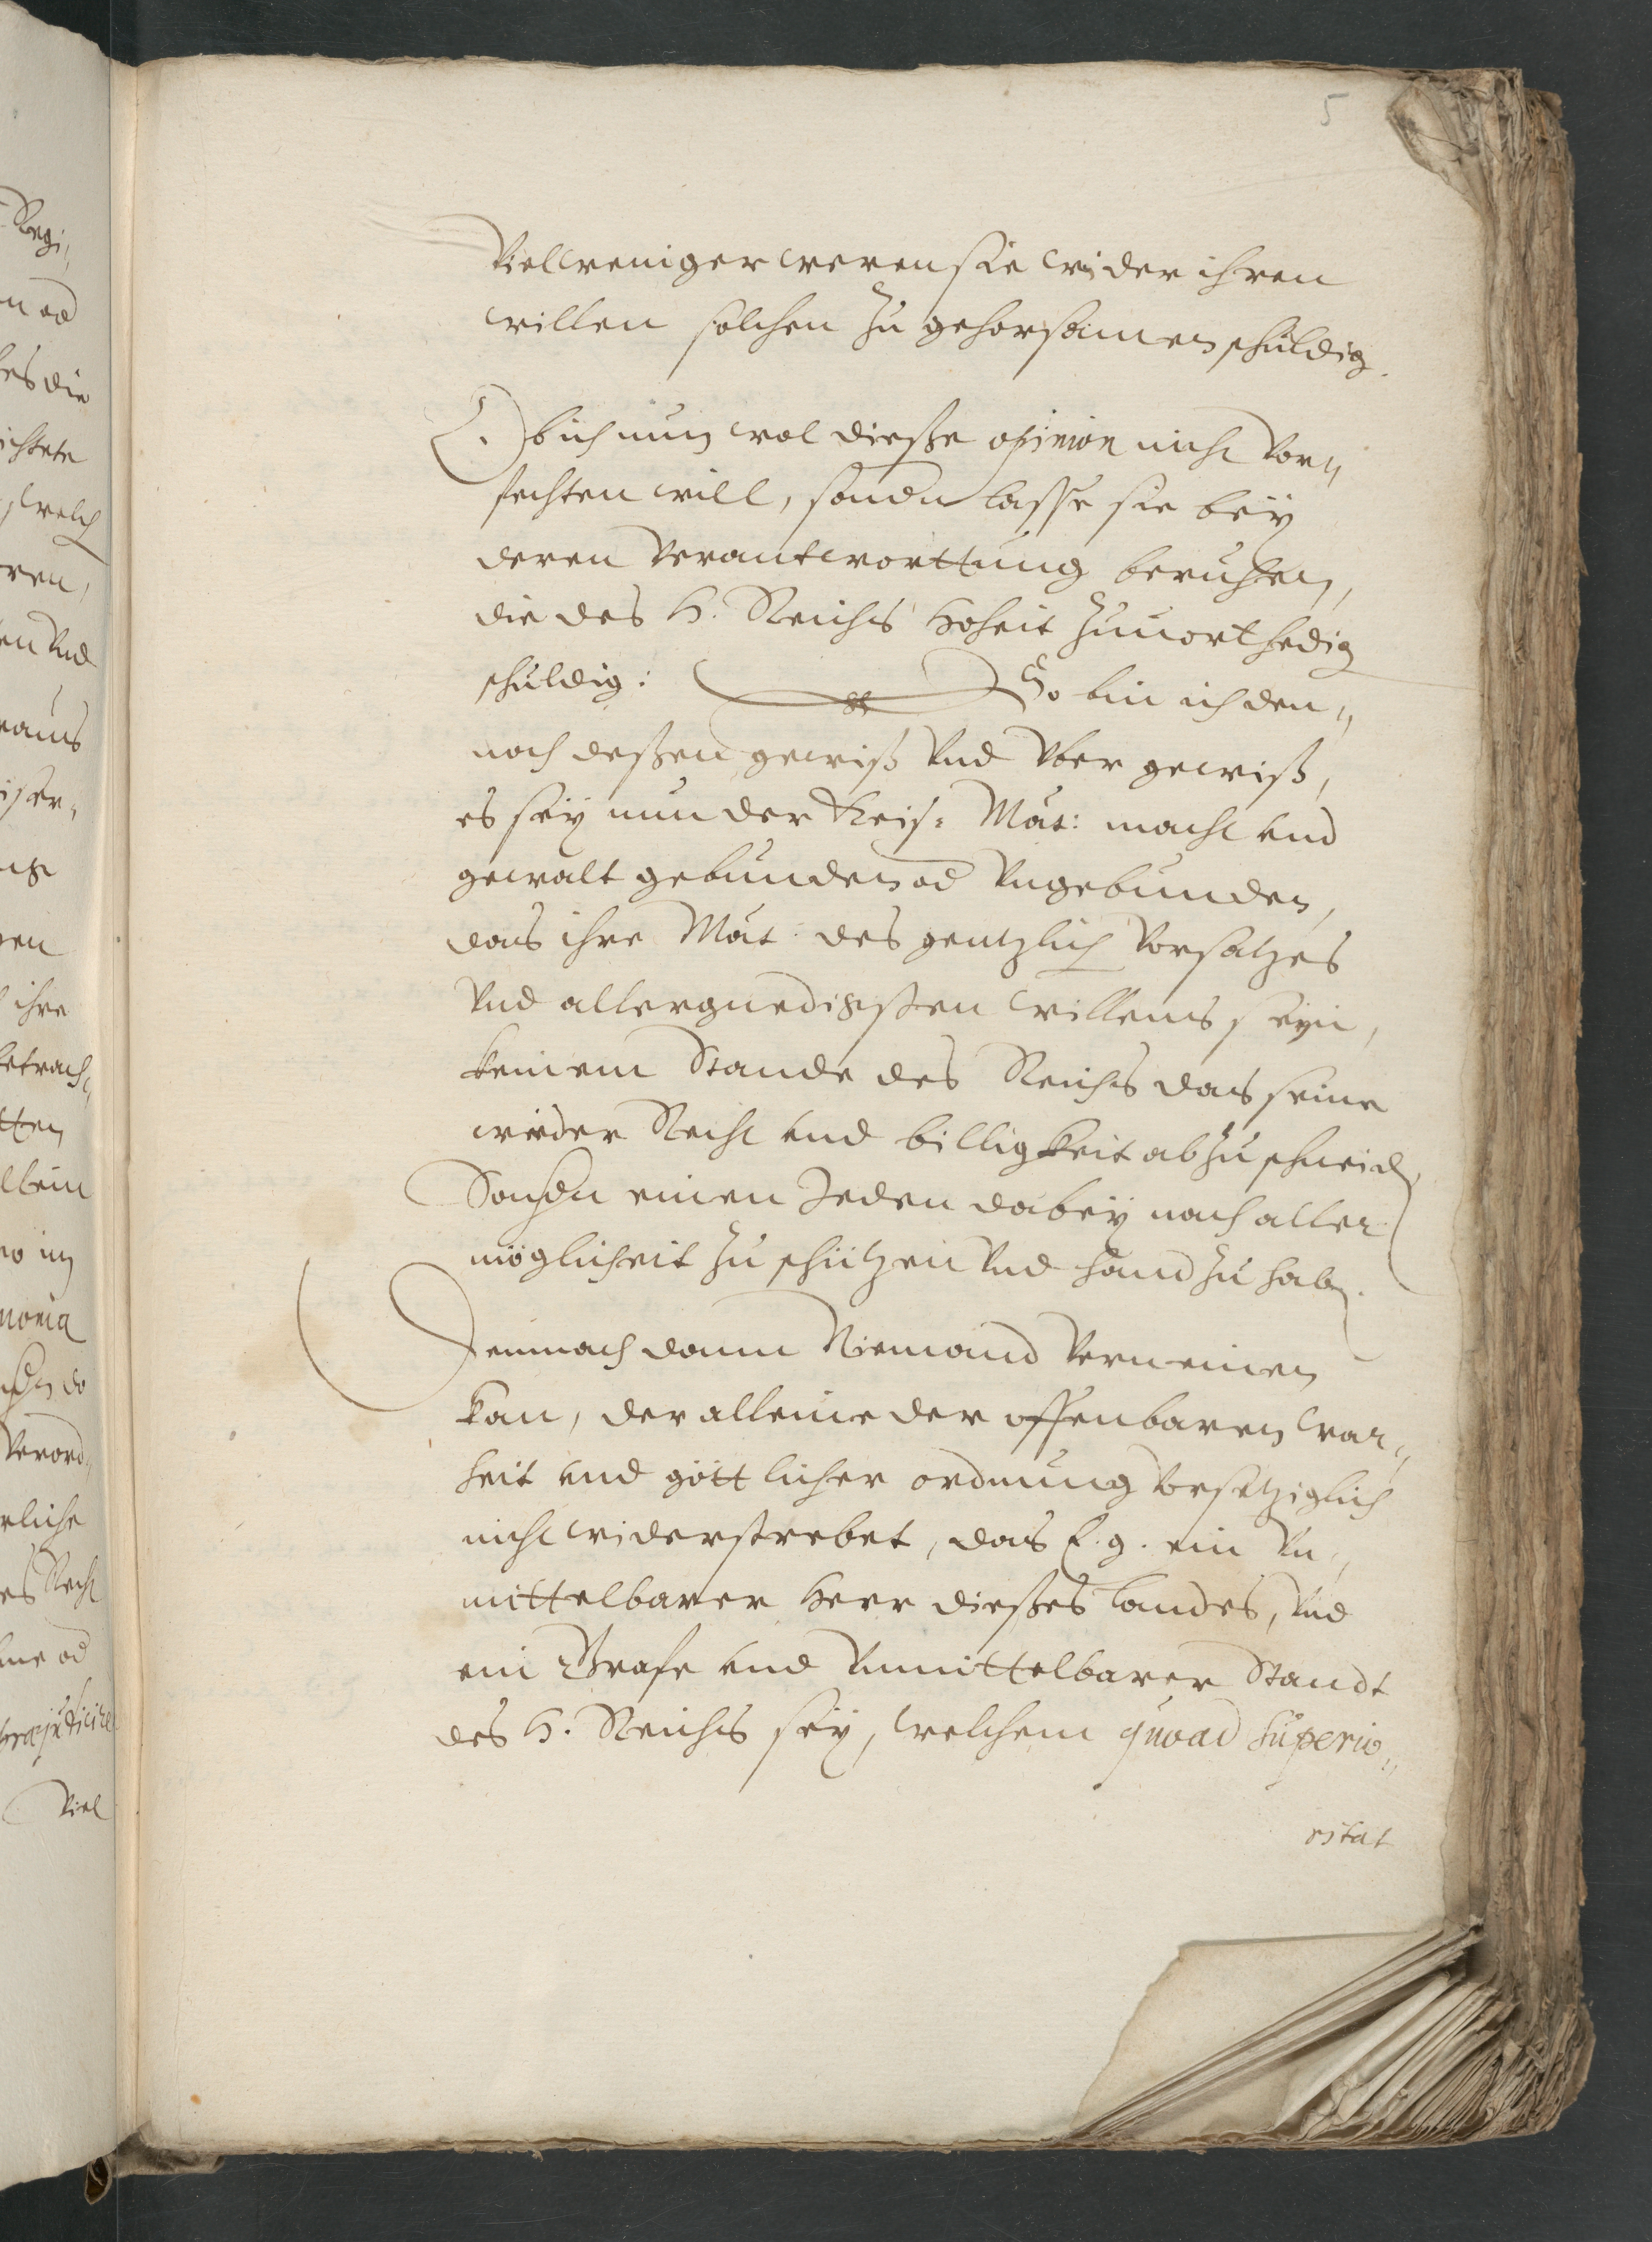 5
Vielweniger weren sie wider ihren
willen solchen zu gehorsamen schuldig.
Ob ich nun wol dieße opinion nicht vor„
fechten will, sondn lasse sie beÿ
deren verantworttung beruhen,
die des H. Reichs Hoheit zuuorthedig
schuldig: So bin ich den„
noch deßen gewiß vnd vber gewiß,
es seÿ nun der Keis: Maÿt: macht vnd
gewalt gebunden od vngebunden,
das ihre Maÿt: des gentzlich vorsatzes
vnd allergnedigsten willens seyn,
keinem Stande des Reichs das seine
wieder Recht vnd billigkeit abzuschneid,
Sondn einen Jeden dabeÿ nach aller
mögligheit zu schützen vnd handzuhab.
Demnach dann Niemand verneinen
kan, der alleine der offenbaren war„
heit vnd göttlicher ordnung vorsetziglich
nicht widerstrebet, das E. g. ein Vn„
mittelbarer Herr dießes landes, vnd
ein Grafe vnd vnmittelbarer Standt
des H. Reichs seÿ, welchem quoad superio„
ritat